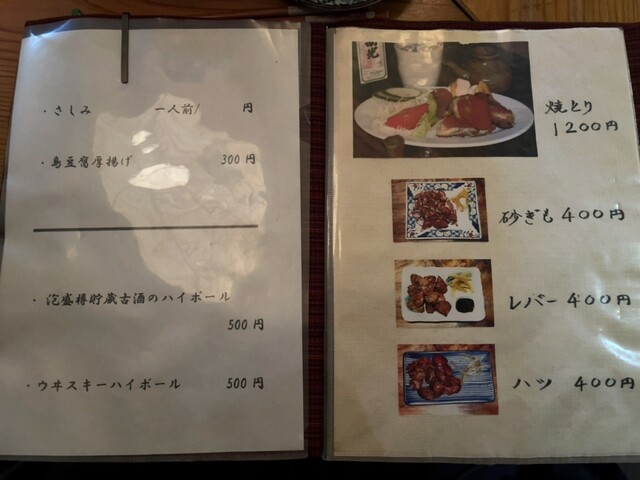 ・さしみ 一人前/ 円
・島豆腐厚揚げ 300円
・泡盛樽貯蔵古酒のハイボール
500円
・ウヰスキーハイボール 500円
焼とり
1200円
砂ぎも 400円
レバー 400円
ハツ 400円